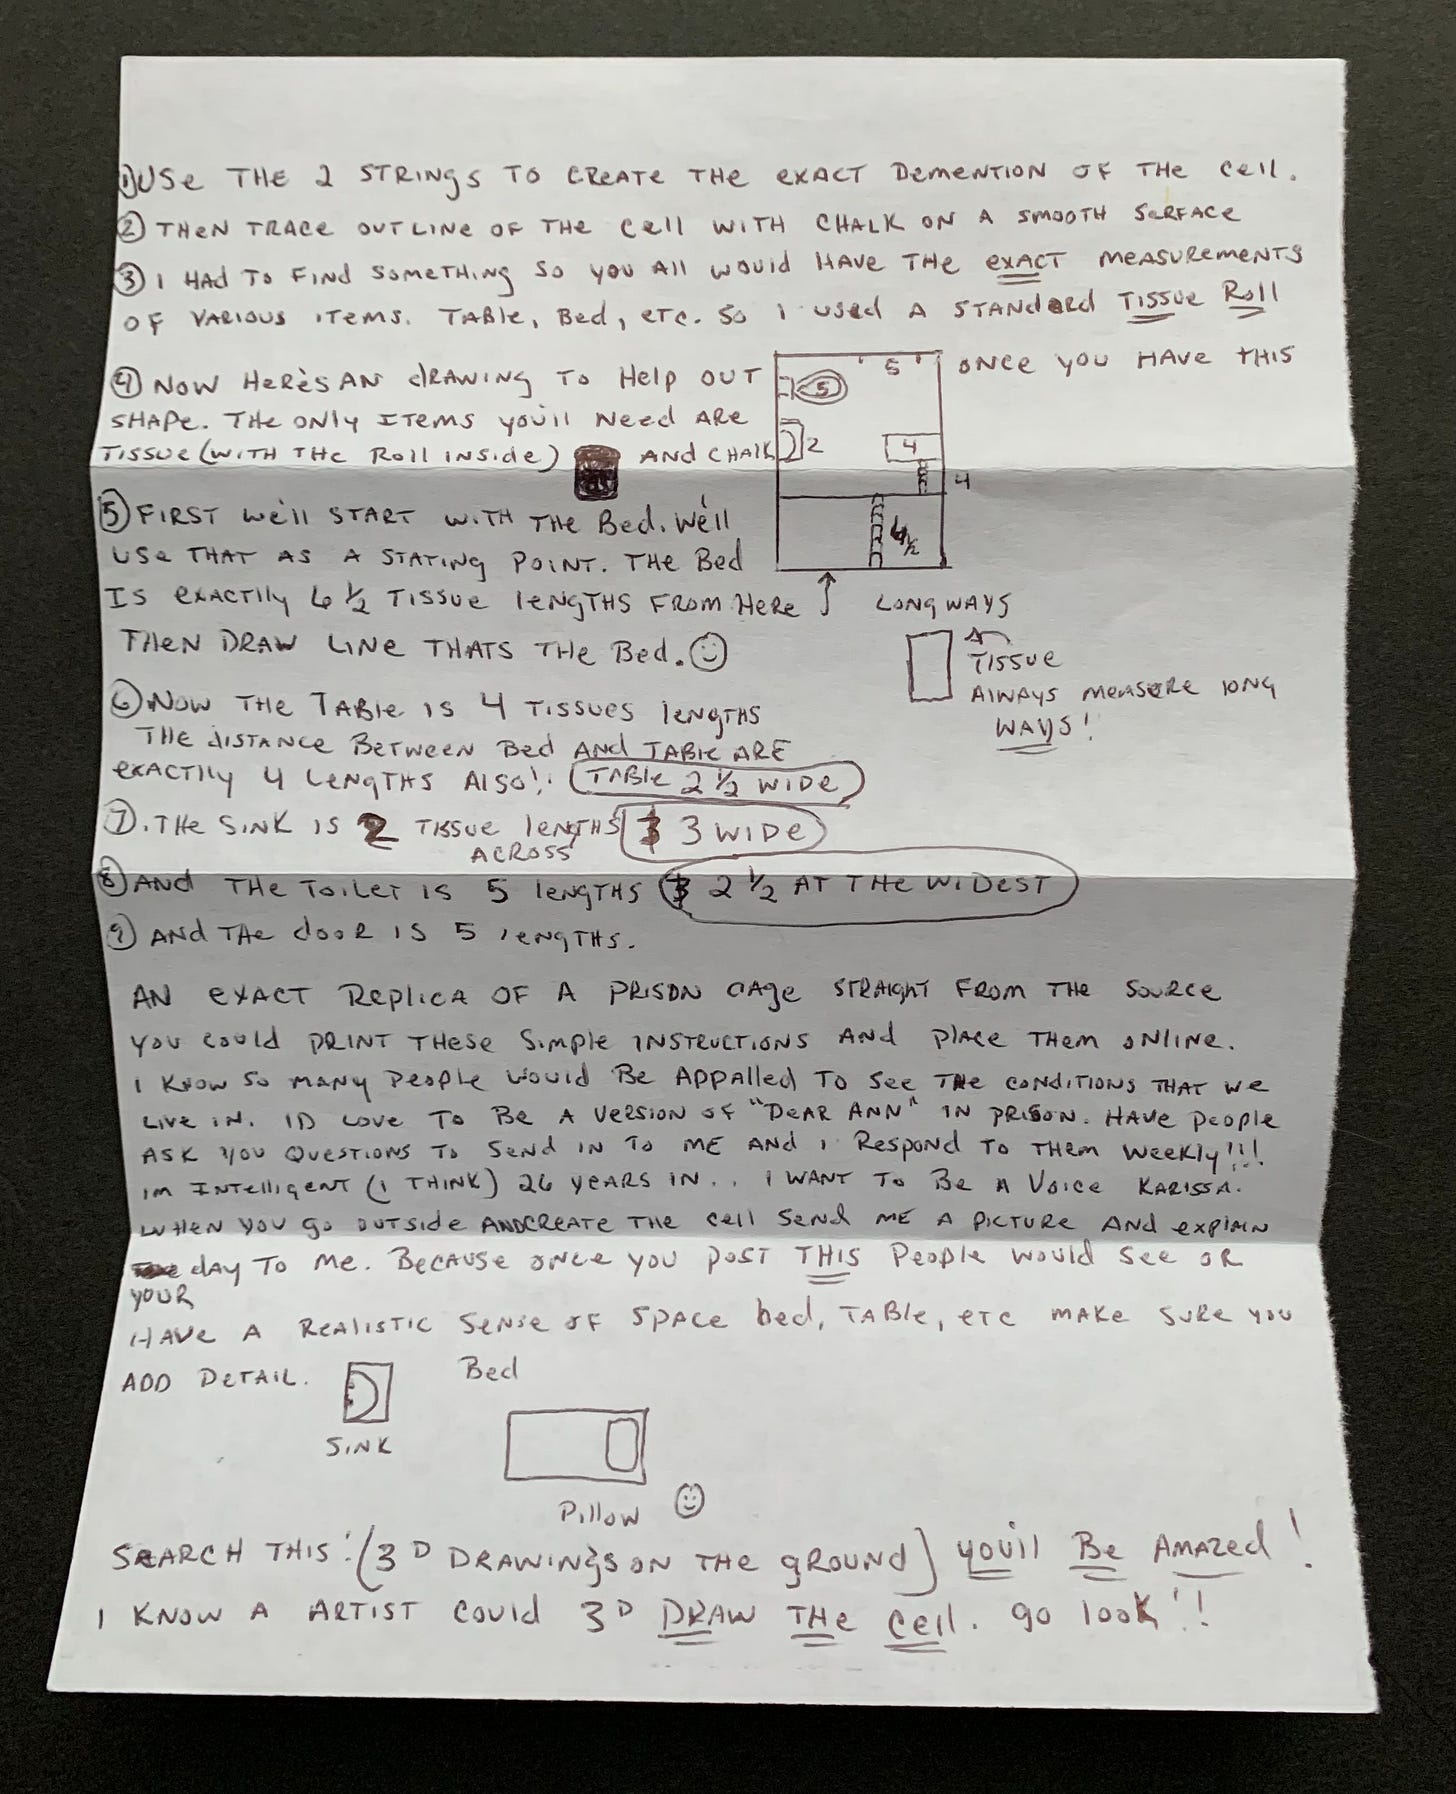 ① USE THE 2 STRINGS TO CREATE THE EXACT DEMENTION OF THE CELL.
② THEN TRACE OUTLINE OF THE CELL WITH CHALK ON A SMOOTH SURFACE
③ I HAD TO FIND SOMETHING SO YOU ALL WOULD HAVE THE EXACT MEASUREMENTS
OF VARIOUS ITEMS. TABLE, BED, ETC. SO I USED A STANDARD TISSUE ROLL
④ NOW HERE'S AN DRAWING TO HELP OUT ONCE YOU HAVE THIS
SHAPE. THE ONLY ITEMS YOU'LL NEED ARE
TISSUE (WITH THE ROLL INSIDE) AND CHALK
5
5
2
4
4
6½
⑤ FIRST WE'LL START WITH THE BED. WE'LL
USE THAT AS A STATING POINT. THE BED
IS EXACTLLY 6 ½ TISSUE LENGTHS FROM HERE
THEN DRAW LINE THATS THE BED.
LONG WAYS
TISSUE
ALWAYS MEASURE LONG
WAYS!
⑥ NOW THE TABLE IS 4 TISSUES LENGTHS
THE DISTANCE BETWEEN BED AND TABLE ARE
EXACTLLY 4 LENGTHS ALSO! TABLE 2 ½ WIDE
⑦. THE SINK IS 2 TISSUE LENGTHS 3 WIDE
ACROSS
⑧ AND THE TOILET IS 5 LENGTHS 2 ½ AT THE WIDEST
⑨ AND THE DOOR IS 5 LENGTHS.
AN EXACT REPLICA OF A PRISON CAGE STRAIGHT FROM THE SOURCE
YOU COULD PRINT THESE SIMPLE INSTRUCTIONS AND PLACE THEM ONLINE.
I KNOW SO MANY PEOPLE WOULD BE APPALLED TO SEE THE CONDITIONS THAT WE
LIVE IN. ID LOVE TO BE A VERSION OF "DEAR ANN" IN PRISON. HAVE PEOPLE
ASK YOU QUESTIONS TO SEND IN TO ME AND I RESPOND TO THEM WEEKLY!!!
IM INTELLIGENT (I THINK) 26 YEARS IN.. I WANT TO BE A VOICE KARISSA.
WHEN YOU GO OUTSIDE AND CREATE THE CELL SEND ME A PICTURE AND EXPLAIN
DAY TO ME. BECAUSE ONCE YOU POST THIS PEOPLE WOULD SEE OR
YOUR
HAVE A REALISTIC SENSE OF SPACE BED, TABLE, ETC MAKE SURE YOU
ADD DETAIL.
BED
SINK
PILLOW
SEARCH THIS: (3D DRAWINGS ON THE GROUND) YOU'LL BE AMAZED!
I KNOW A ARTIST COULD 3D DRAW THE CELL. GO LOOK!!